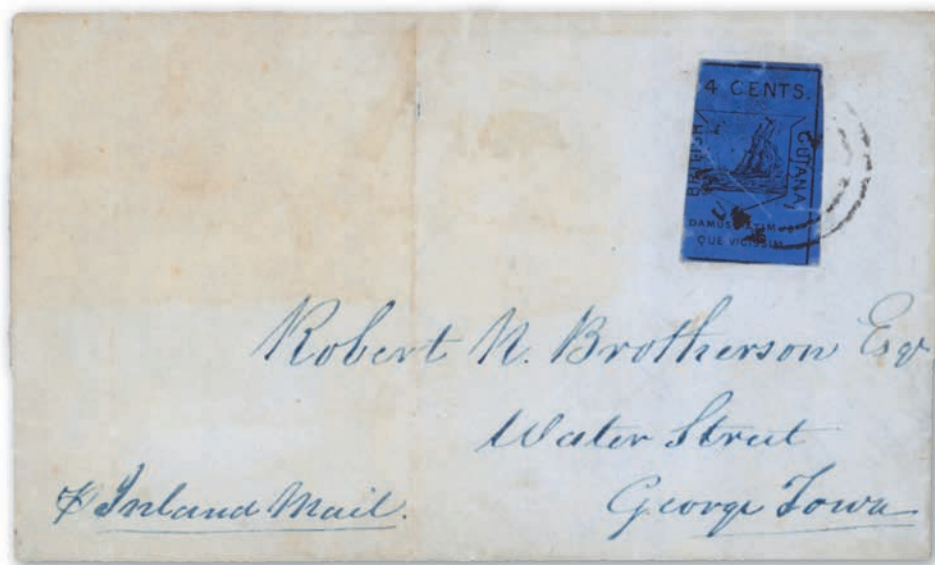 4 CENTS.
BRITISH
GUIANA
DAMUS PETIMUS
QUE VICISSIM
Robert N. Brotherson Esqr
Water Street
George Town
Inland Mail.